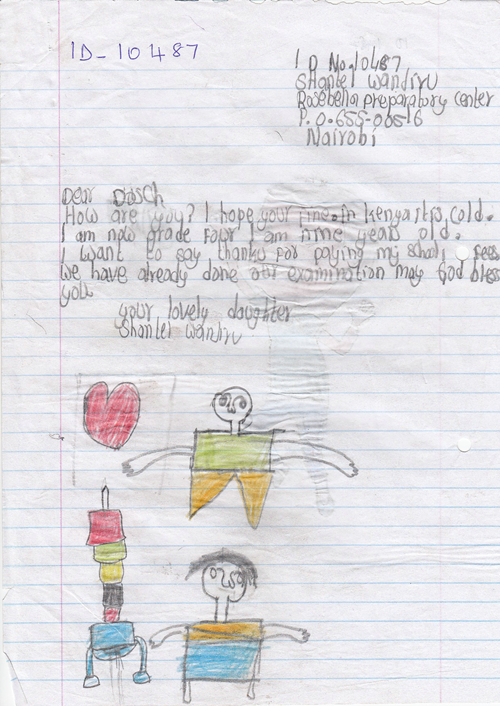 ID-10487
ID No.10487
Shantel Wanjiru
Rosebella preparatory center
P.O.655-00516
Nairobi
Dear Dasch
How are you? I hope your fine.In kenya its cold.
I am now grade Four I am nine years old.
I want to say thanks for paying my school fees
we have already done our examination may God bless
you.
your lovely daughter
Shantel wanjiru